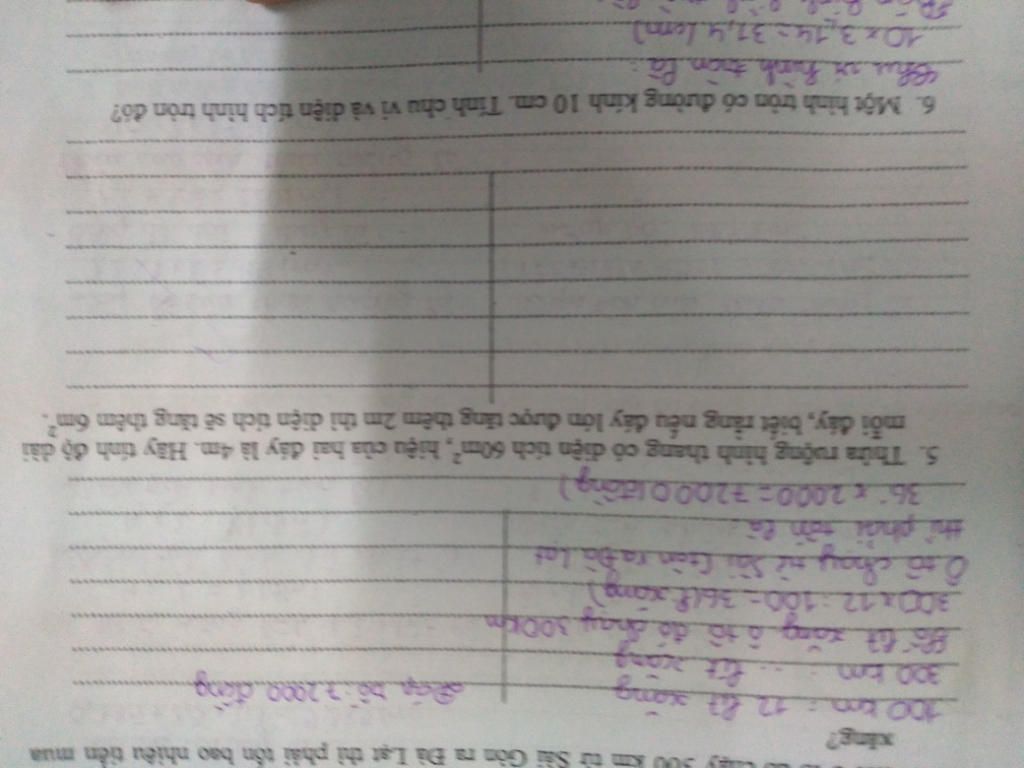 chạy 300 km từ Sài Gòn ra Đà Lạt thì phải tốn bao nhiêu tiền mua
xăng?
100 km : 12 lít xăng
Đáp số: 72000 đồng
300 km : ... lít xăng
Số lít xăng ô tô đó chạy 300km
300 x 12 : 100 = 36 (l xăng)
Ô tô chạy từ Sài Gòn ra Đà Lạt
thì phải tốn là :
36 x 2000 = 72000 (đồng)
5. Thửa ruộng hình thang có diện tích 60m², hiệu của hai đáy là 4m. Hãy tính độ dài
mỗi đáy, biết rằng nếu đáy lớn được tăng thêm 2m thì diện tích sẽ tăng thêm 6m².
6. Một hình tròn có đường kính 10 cm. Tính chu vi và diện tích hình tròn đó?
Chu vi hình tròn là :
10 x 3,14 = 31,4 (cm)